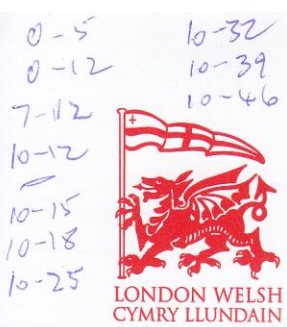 0-5
0-12
7-12
10-12
10-15
10-18
10-25
10-32
10-39
10-46
LONDON WELSH
CYMRY LLUNDAIN